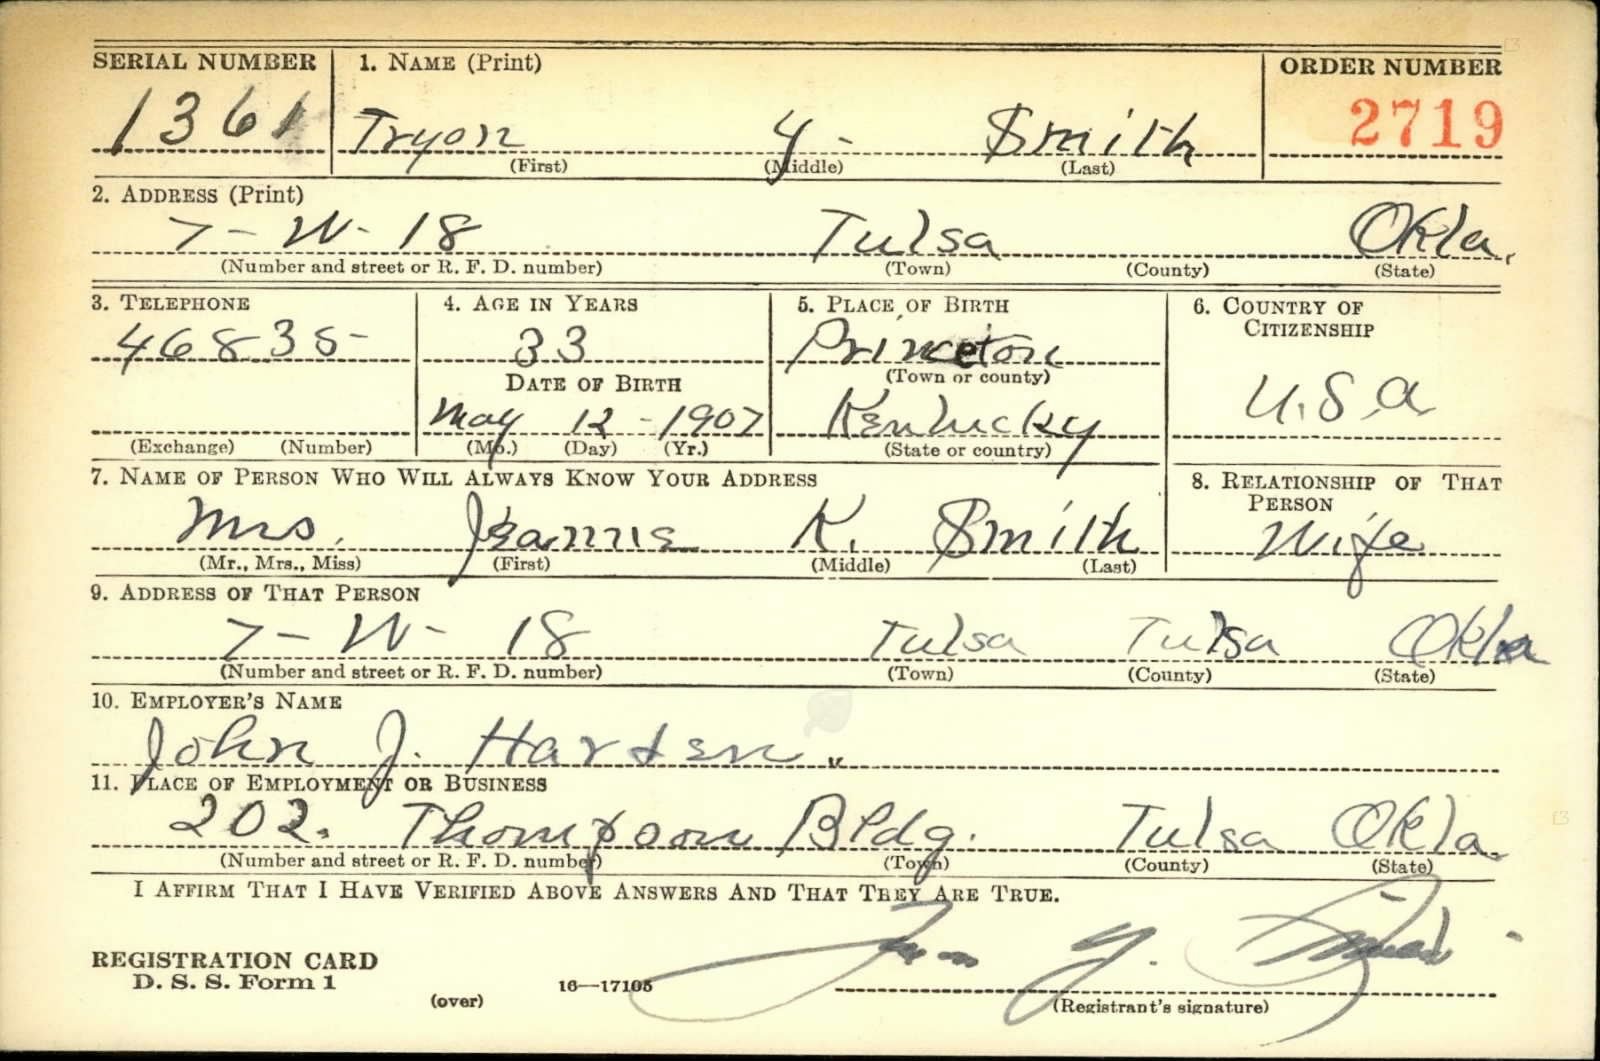 SERIAL NUMBER 1. NAME (Print) ORDER NUMBER
1361 Tryon Y- Smith 2719
(First) (Middle) (Last)
2. ADDRESS (Print)
7-W-18 Tulsa Okla.
(Number and street or R. F. D. number) (Town) (County) (State)
3. TELEPHONE 4. AGE IN YEARS 5. PLACE OF BIRTH 6. COUNTRY OF CITIZENSHIP
46835- 33 Princeton
(Town or county)
DATE OF BIRTH
May 12-1907 Kentucky U.S.a
(Exchange) (Number) (Mo.) (Day) (Yr.) (State or country)
7. NAME OF PERSON WHO WILL ALWAYS KNOW YOUR ADDRESS 8. RELATIONSHIP OF THAT PERSON
Mrs. Jeannie K. Smith Wife
(Mr., Mrs., Miss) (First) (Middle) (Last)
9. ADDRESS OF THAT PERSON
7-W-18 Tulsa Tulsa Okla
(Number and street or R. F. D. number) (Town) (County) (State)
10. EMPLOYER'S NAME
John J. Harden.
11. PLACE OF EMPLOYMENT OR BUSINESS
202. Thompson Bldg. Tulsa Okla.
(Number and street or R. F. D. number) (Town) (County) (State)
I AFFIRM THAT I HAVE VERIFIED ABOVE ANSWERS AND THAT THEY ARE TRUE.
REGISTRATION CARD
D. S. S. Form 1
(over) 16—17105 (Registrant's signature)